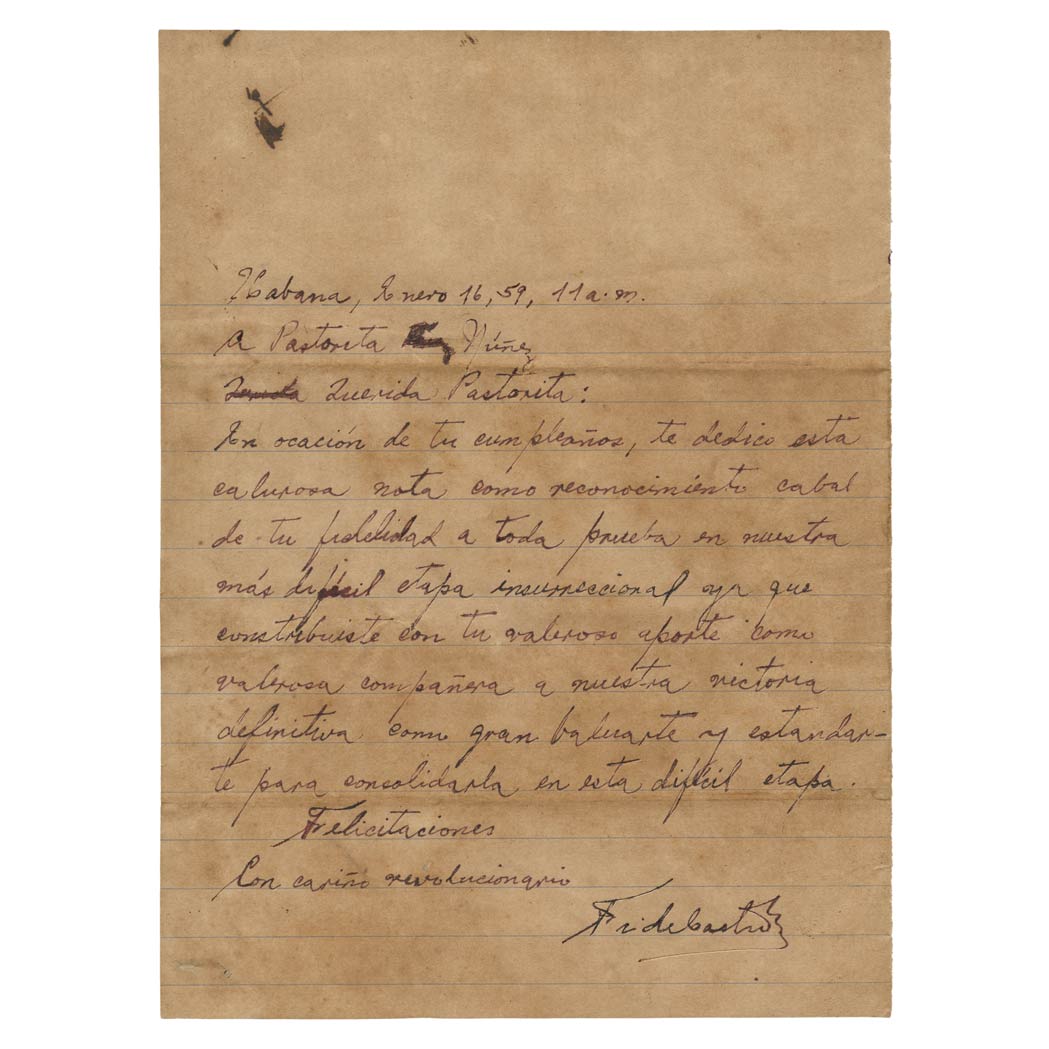 Habana, Enero 16, 59, 11 a.m.
A Pastorita Núñez
Querida Pastorita:
En ocación de tu cumpleaños, te dedico esta
calurosa nota como reconocimiento cabal
de tu fidelidad a toda prueba en nuestra
más difícil etapa insurreccional ya que
constribuiste con tu valeroso aporte como
valerosa compañera a nuestra victoria
definitiva como gran baluarte y estandar-
te para consolidarla en esta difícil etapa.
Felicitaciones
Con cariño revolucionario
Fidel Castro